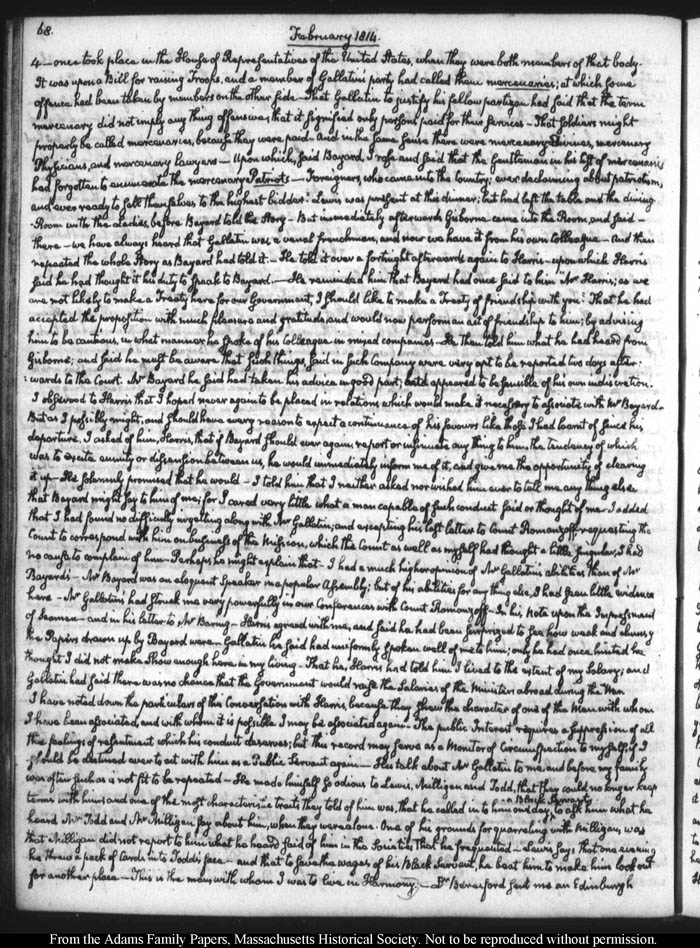 68.
February 1814.
4 — once took place in the House of Representatives of the United States, when they were both members of that body.
It was upon a Bill for raising Troops, and a member of Gallatin's party had called them mercenaries; at which some
offence had been taken by members on the other side — That Gallatin to justify his fellow partizan had said that the term
mercenary did not imply any thing offensive; that it signified only persons paid for their services — That soldiers might
properly be called mercenaries, because they were paid — And in the same sense there were mercenary Divines, mercenary
Physicians, and mercenary lawyers — Upon which, said Bayard, I rose and said that the Gentleman in his list of mercenaries
had forgotten to enumerate the mercenary Patriots — Foreigners, who came into the Country, ever declaiming about patriotism,
and ever ready to sell themselves to the highest bidder. Lewis was present at this dinner; but had left the table and the dining
Room with the Ladies, before Bayard told the story — But immediately afterwards Gisborne came into the Room, and said —
there — we have always heard that Gallatin was a venal frenchman, and now we have it from his own Colleague — And then
repeated the whole story as Bayard had told it — He told it over a fortnight afterwards again to Harris — upon which Harris
said he had thought it his duty to speak to Bayard — He reminded him that Bayard had once said to him "Mr Harris; as we
are not likely to make a Treaty here for our Government, I should like to make a Treaty of friendship with you: That he had
accepted the proposition with much pleasure and gratitude, and would now perform an act of friendship to him; by advising
him to be cautious, in what manner he spoke of his Colleague in mixed companies — He then told him what he had heard from
Gisborne; and said he must be aware that such things, said in such Company were very apt to be reported two days after-
:wards to the Court. Mr Bayard he said had taken his advice in good part; and appeared to be sensible of his own indiscretion.
I observed to Harris that I hoped never again to be placed in relations which would make it necessary to associate with Mr Bayard.
But as I possibly might, and should have every reason to expect a continuance of his favours like those I had learnt of since his
departure, I asked of him, Harris, that if Bayard should ever again report or insinuate any thing to him the tendency of which
was to excite enmity or dissension between us, he would immediately inform me of it, and give me the opportunity of clearing
it up — He solemnly promised that he would — I told him that I neither asked nor wished him ever to tell me any thing else
that Bayard might say to him of me; for I cared very little what a man capable of such conduct said or thought of me — I added
that I had found no difficulty in getting along with Mr Gallatin; and excepting his last letter to Count Romanzoff requesting the
Count to correspond with him on business of the Mission, which the Count as well as myself had thought a little singular, I had
no cause to complain of him — Perhaps he might explain that — I had a much higher opinion of Mr Gallatin's abilities than of Mr
Bayard's — Mr Bayard was an eloquent speaker in a popular Assembly; but of his abilities for any thing else, I had seen little evidence
here — Mr Gallatin's had struck me very powerfully in our Conferences with Count Romanzoff — In his Note upon the Impressment
of Seamen — and in his letter to Mr Baring — Harris agreed with me, and said he had been surprized to see how weak and clumsy
the Papers drawn up by Bayard were — Gallatin he said had uniformly spoken well of me to him; only he had once hinted he
thought I did not make show enough here in my living — That he, Harris had told him I lived to the extent of my Salary; and
Gallatin had said there was no chance that the Government would raise the Salaries of the Ministers abroad during the War
I have noted down the particulars of this Conversation with Harris, because they shew the character of one of the Men with whom
I have been associated, and with whom it is possible I may be associated again — The public Interest requires a suppression of all
the feelings of resentment which his conduct deserves; but this record may serve as a Monitor of Circumspection to myself, if I
should be destined ever to act with him as a Public Servant again — His talk about Mr Gallatin to me, and before my family
was often such as is not fit to be repeated — He made himself so odious to Lewis, Milligan and Todd, that they could no longer keep
terms with him; and one of the most characteristic traits they told of him was, that he called in to him one day, a black Servant, to ask him what he
heard Mr Todd and Mr Milligan say about him, when they were alone. One of his grounds for quarreling with Milligan, was
that Milligan did not report to him what he heard said of him in the Societies that he frequented — Lewis says that one evening
he threw a pack of Cards into Todd's face — and that to save the wages of his Black Servant, he beat him to make him look out
for another place — This is the man, with whom I was to live in Harmony. — Dr Beresford sent me an Edinburgh
From the Adams Family Papers, Massachusetts Historical Society. Not to be reproduced without permission.